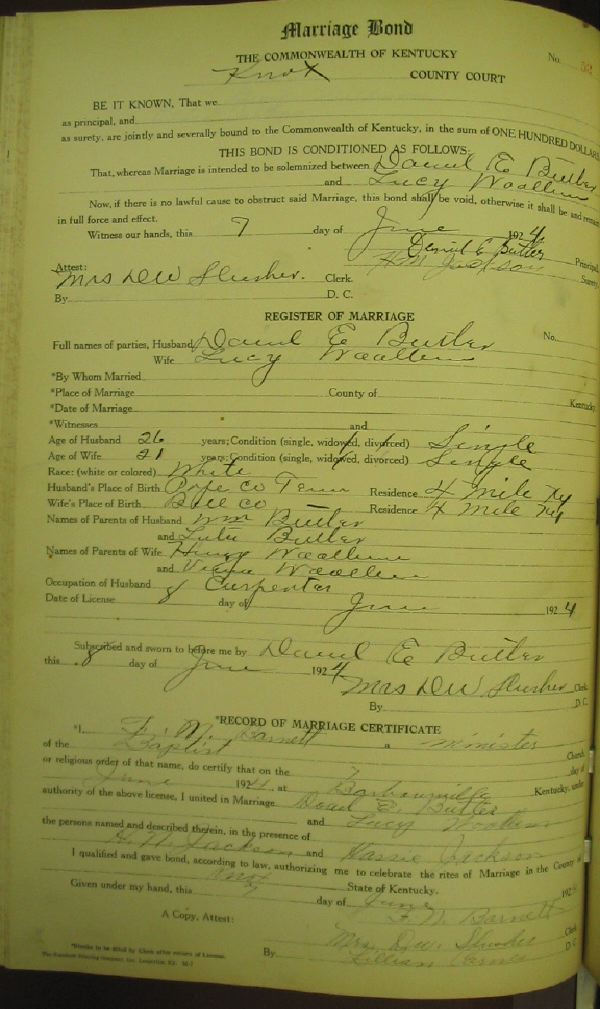 Marriage Bond
THE COMMONWEALTH OF KENTUCKY
No.
Knox COUNTY COURT
BE IT KNOWN, That we
as principal, and
as surety, are jointly and severally bound to the Commonwealth of Kentucky, in the sum of ONE HUNDRED DOLLARS
THIS BOND IS CONDITIONED AS FOLLOWS:
That, whereas Marriage is intended to be solemnized between Daniel E Butler
and Lucy Woollum
Now, if there is no lawful cause to obstruct said Marriage, this bond shall be void, otherwise it shall be and remain
in full force and effect.
Witness our hands, this 7 day of June 1924
Daniel E Butler Principal
H M Jackson Surety
Attest:
Mrs D W Slusher. Clerk.
By D. C.
REGISTER OF MARRIAGE
Full names of parties, Husband Daniel E Butler No.
Wife Lucy Woollum
*By Whom Married
*Place of Marriage County of Kentucky
*Date of Marriage
*Witnesses and
Age of Husband 26 years; Condition (single, widowed, divorced) Single
Age of Wife 21 years; Condition (single, widowed, divorced) Single
Race: (white or colored) White
Husband's Place of Birth Co Tenn Residence 4 Mile Ky
Wife's Place of Birth Bell Co Residence 4 Mile Ky
Names of Parents of Husband Wm Butler
and Butler
Names of Parents of Wife Henry Woollum
and Woollum
Occupation of Husband Carpenter
Date of License 8 day of June 1924
Subscribed and sworn to before me by Daniel E Butler
this 8 day of June 1924
Mrs D W Slusher Clerk
By D.C.
*RECORD OF MARRIAGE CERTIFICATE
*I, F. N. Barnett a minister
of the Baptist Church,
or religious order of that name, do certify that on the day of
June 1924, at Barbourville Kentucky, under
authority of the above license, I united in Marriage Daniel E. Butler
and Lucy Woollum
the persons named and described therein, in the presence of
H. N. Jackson and Jackson
I qualified and gave bond, according to law, authorizing me to celebrate the rites of Marriage in the County of
Knox State of Kentucky.
Given under my hand, this day of June 192
F. N. Barnett
A Copy, Attest:
Mrs. D.W. Slusher Clerk
By Lillian D C
*Blanks to be filled by Clerk after return of License.